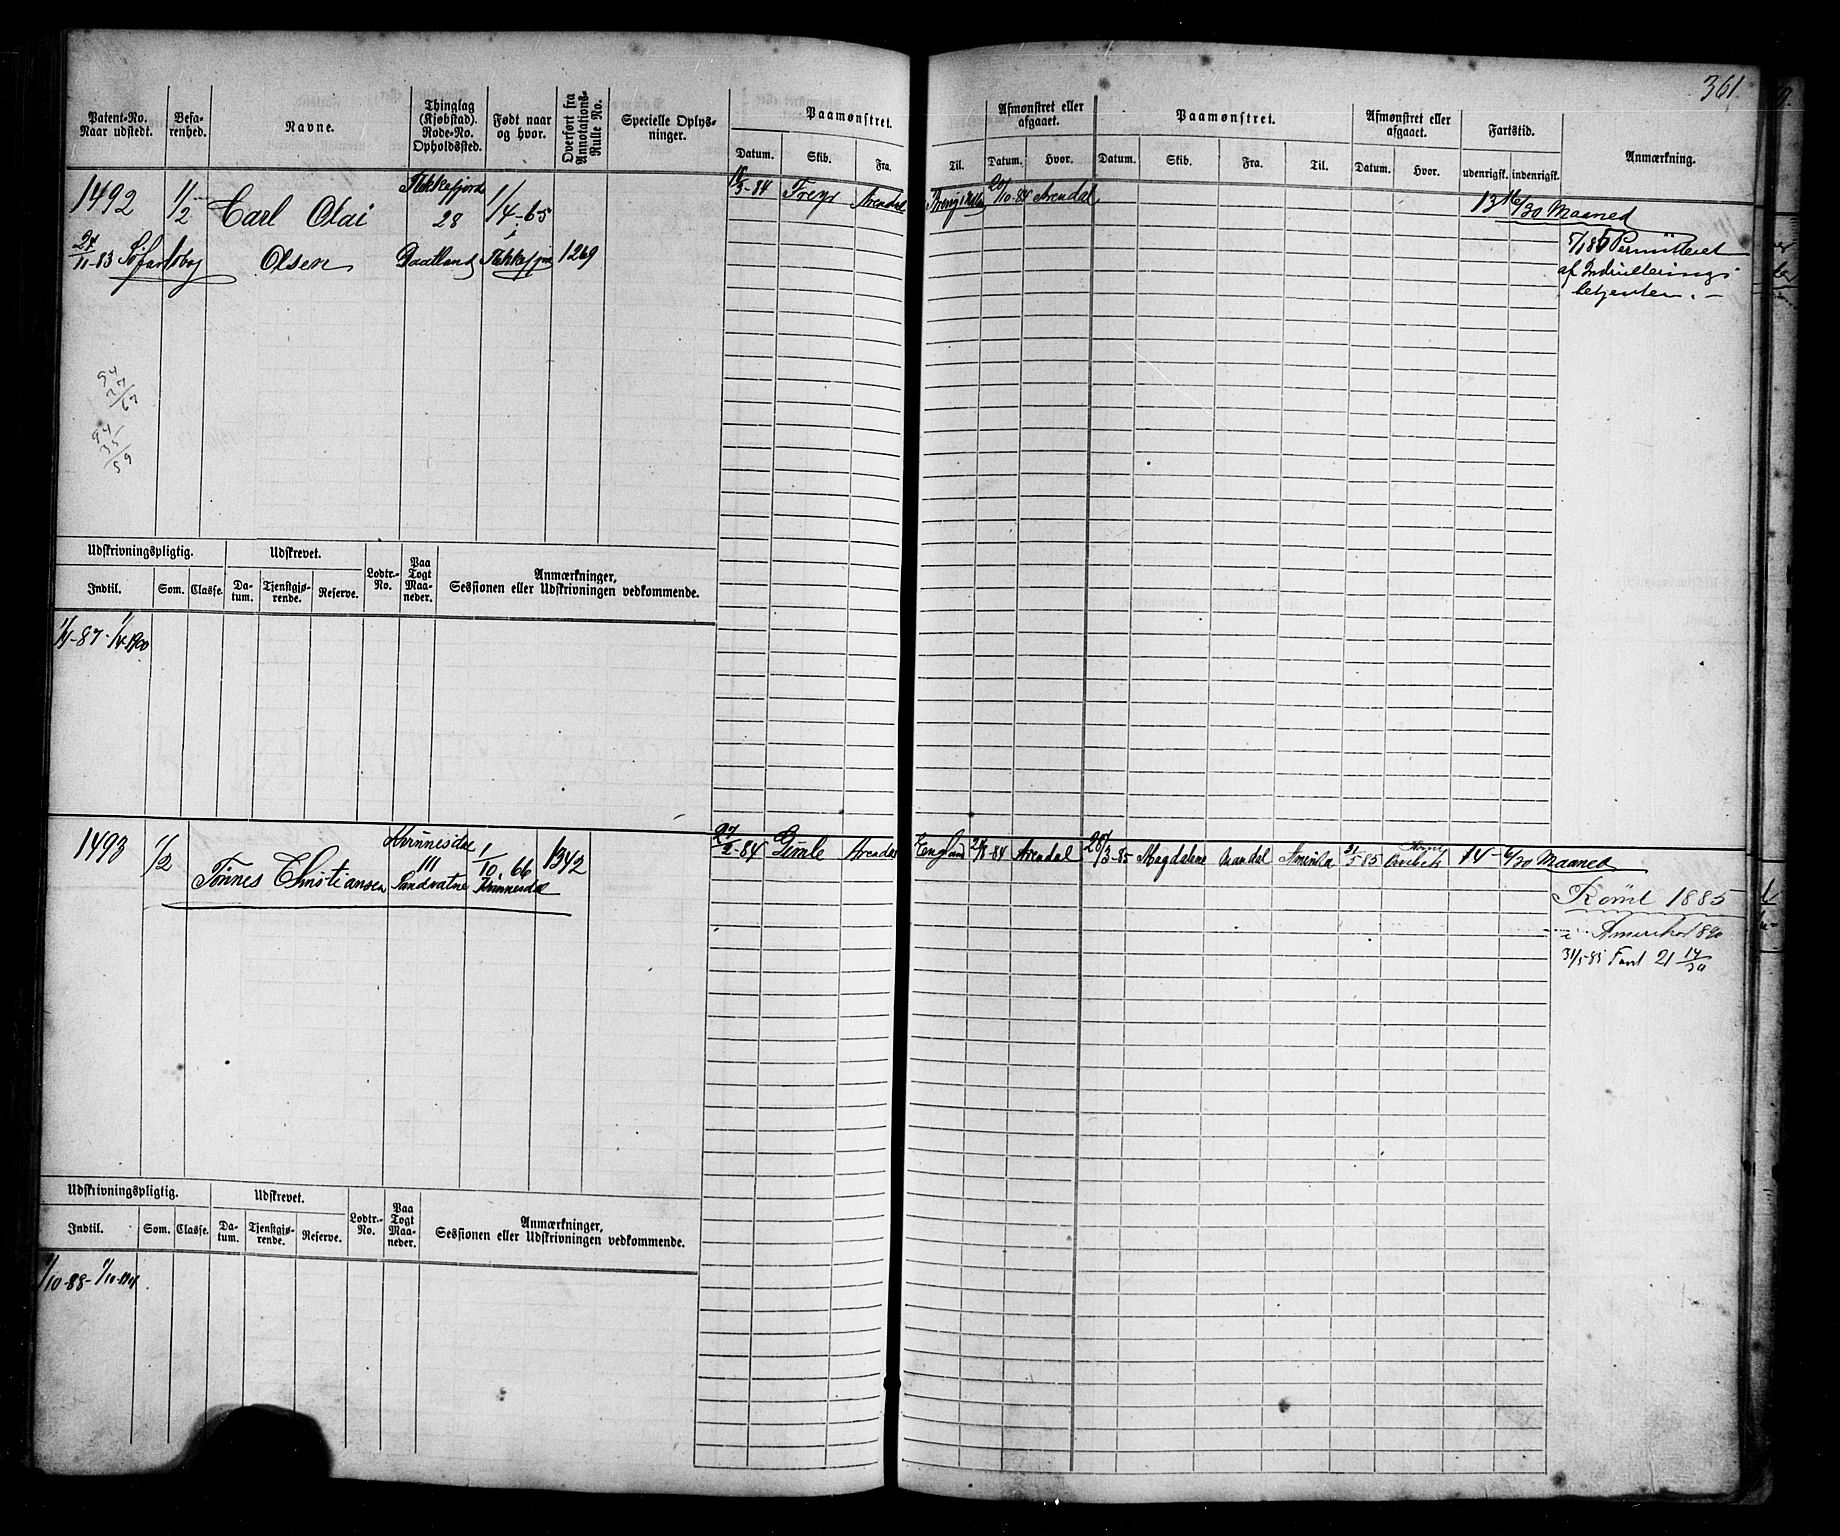 361.
Patent-No. Naar udstedt. Befarenhed. Navne. Thinglag (Kjøbstad). Rode-No. Opholdssted. Født naar og hvor. Overført fra Annotations-Rulle No. Specielle Oplysninger. Paamønstret. Afmønstret eller afgaaet. Paamønstret. Afmønstret eller afgaaet. Fartstid. Anmærkning.
Datum. Skib. Fra. Til. Datum. Hvor. Datum. Skib. Fra. Til. Datum. Hvor. udenrigsk. indenrigsk.
1492 1/2 Carl Olai Flekkefjord 28 1/4-65 3-84 Freyr Arendal 20/10-84 Arendal 13 16/30 Maaned
24/11-83 Olsen i 1269
5/1 85 Permitteret
af Indrullerings-
betjenten. —
94
27
/67
94
35
/59
Udskrivningspligtig. Udskrevet. Lodtr.-No. Paa Togt Maaneder. Anmærkninger, Sessionen eller Udskrivningen vedkommende.
Indtil. Som. Classe. Datum. Tjenstgjørende. Reserve.
1/4-87-1/4-1900
1493 1/2 Tönnes Christiansen 111 1/10.66 1342 27/2-84 Gimle Arendal England 84 Arendal 28/3-85 Magdalene Mandal 85 14 6/30 Maaned
Sandvatne
Römt 1885
i Amerika 1890
31/5-85 Fart 21 14/30
Udskrivningspligtig. Udskrevet. Lodtr.-No. Paa Togt Maaneder. Anmærkninger, Sessionen eller Udskrivningen vedkommende.
Indtil. Som. Classe. Datum. Tjenstgjørende. Reserve.
1/10-88-